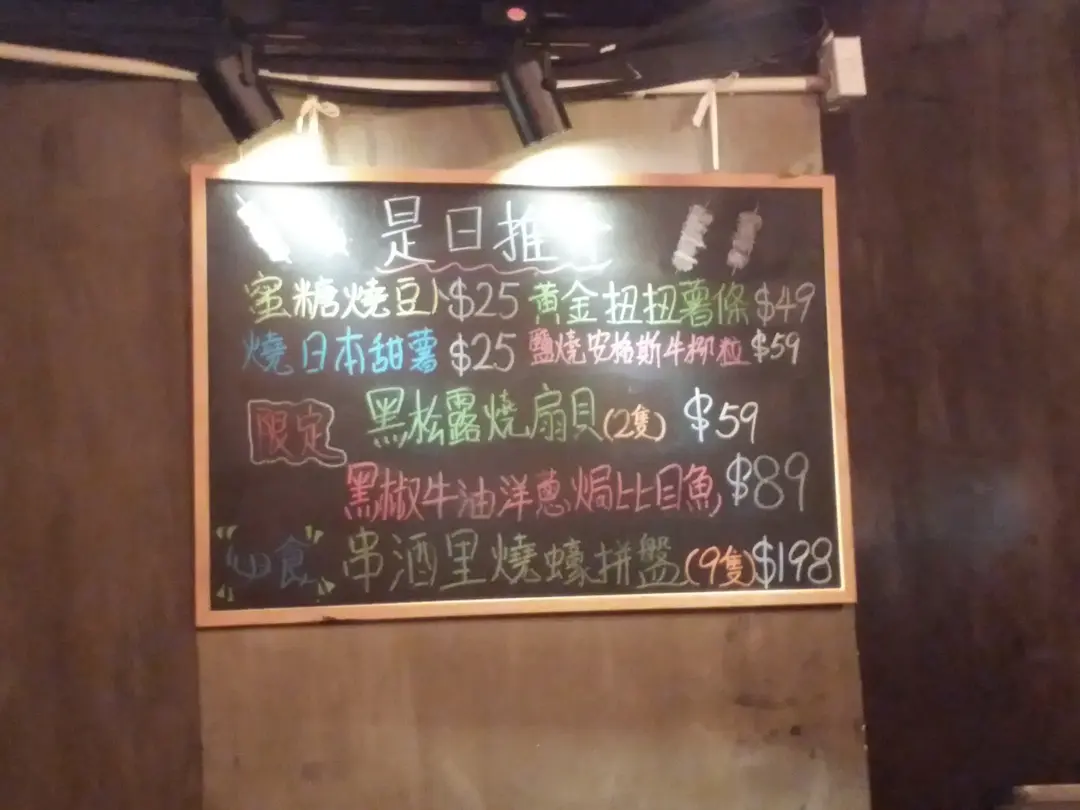 是日推
蜜糖燒豆卜$25 黃金扭扭薯條$49
燒日本甜薯 $25 鹽燒安格斯牛柳粒 $59
限定 黑松露燒扇貝(2隻) $59
黑椒牛油洋蔥焗比目魚 $89
食 串酒里燒蠔拼盤(9隻)$198